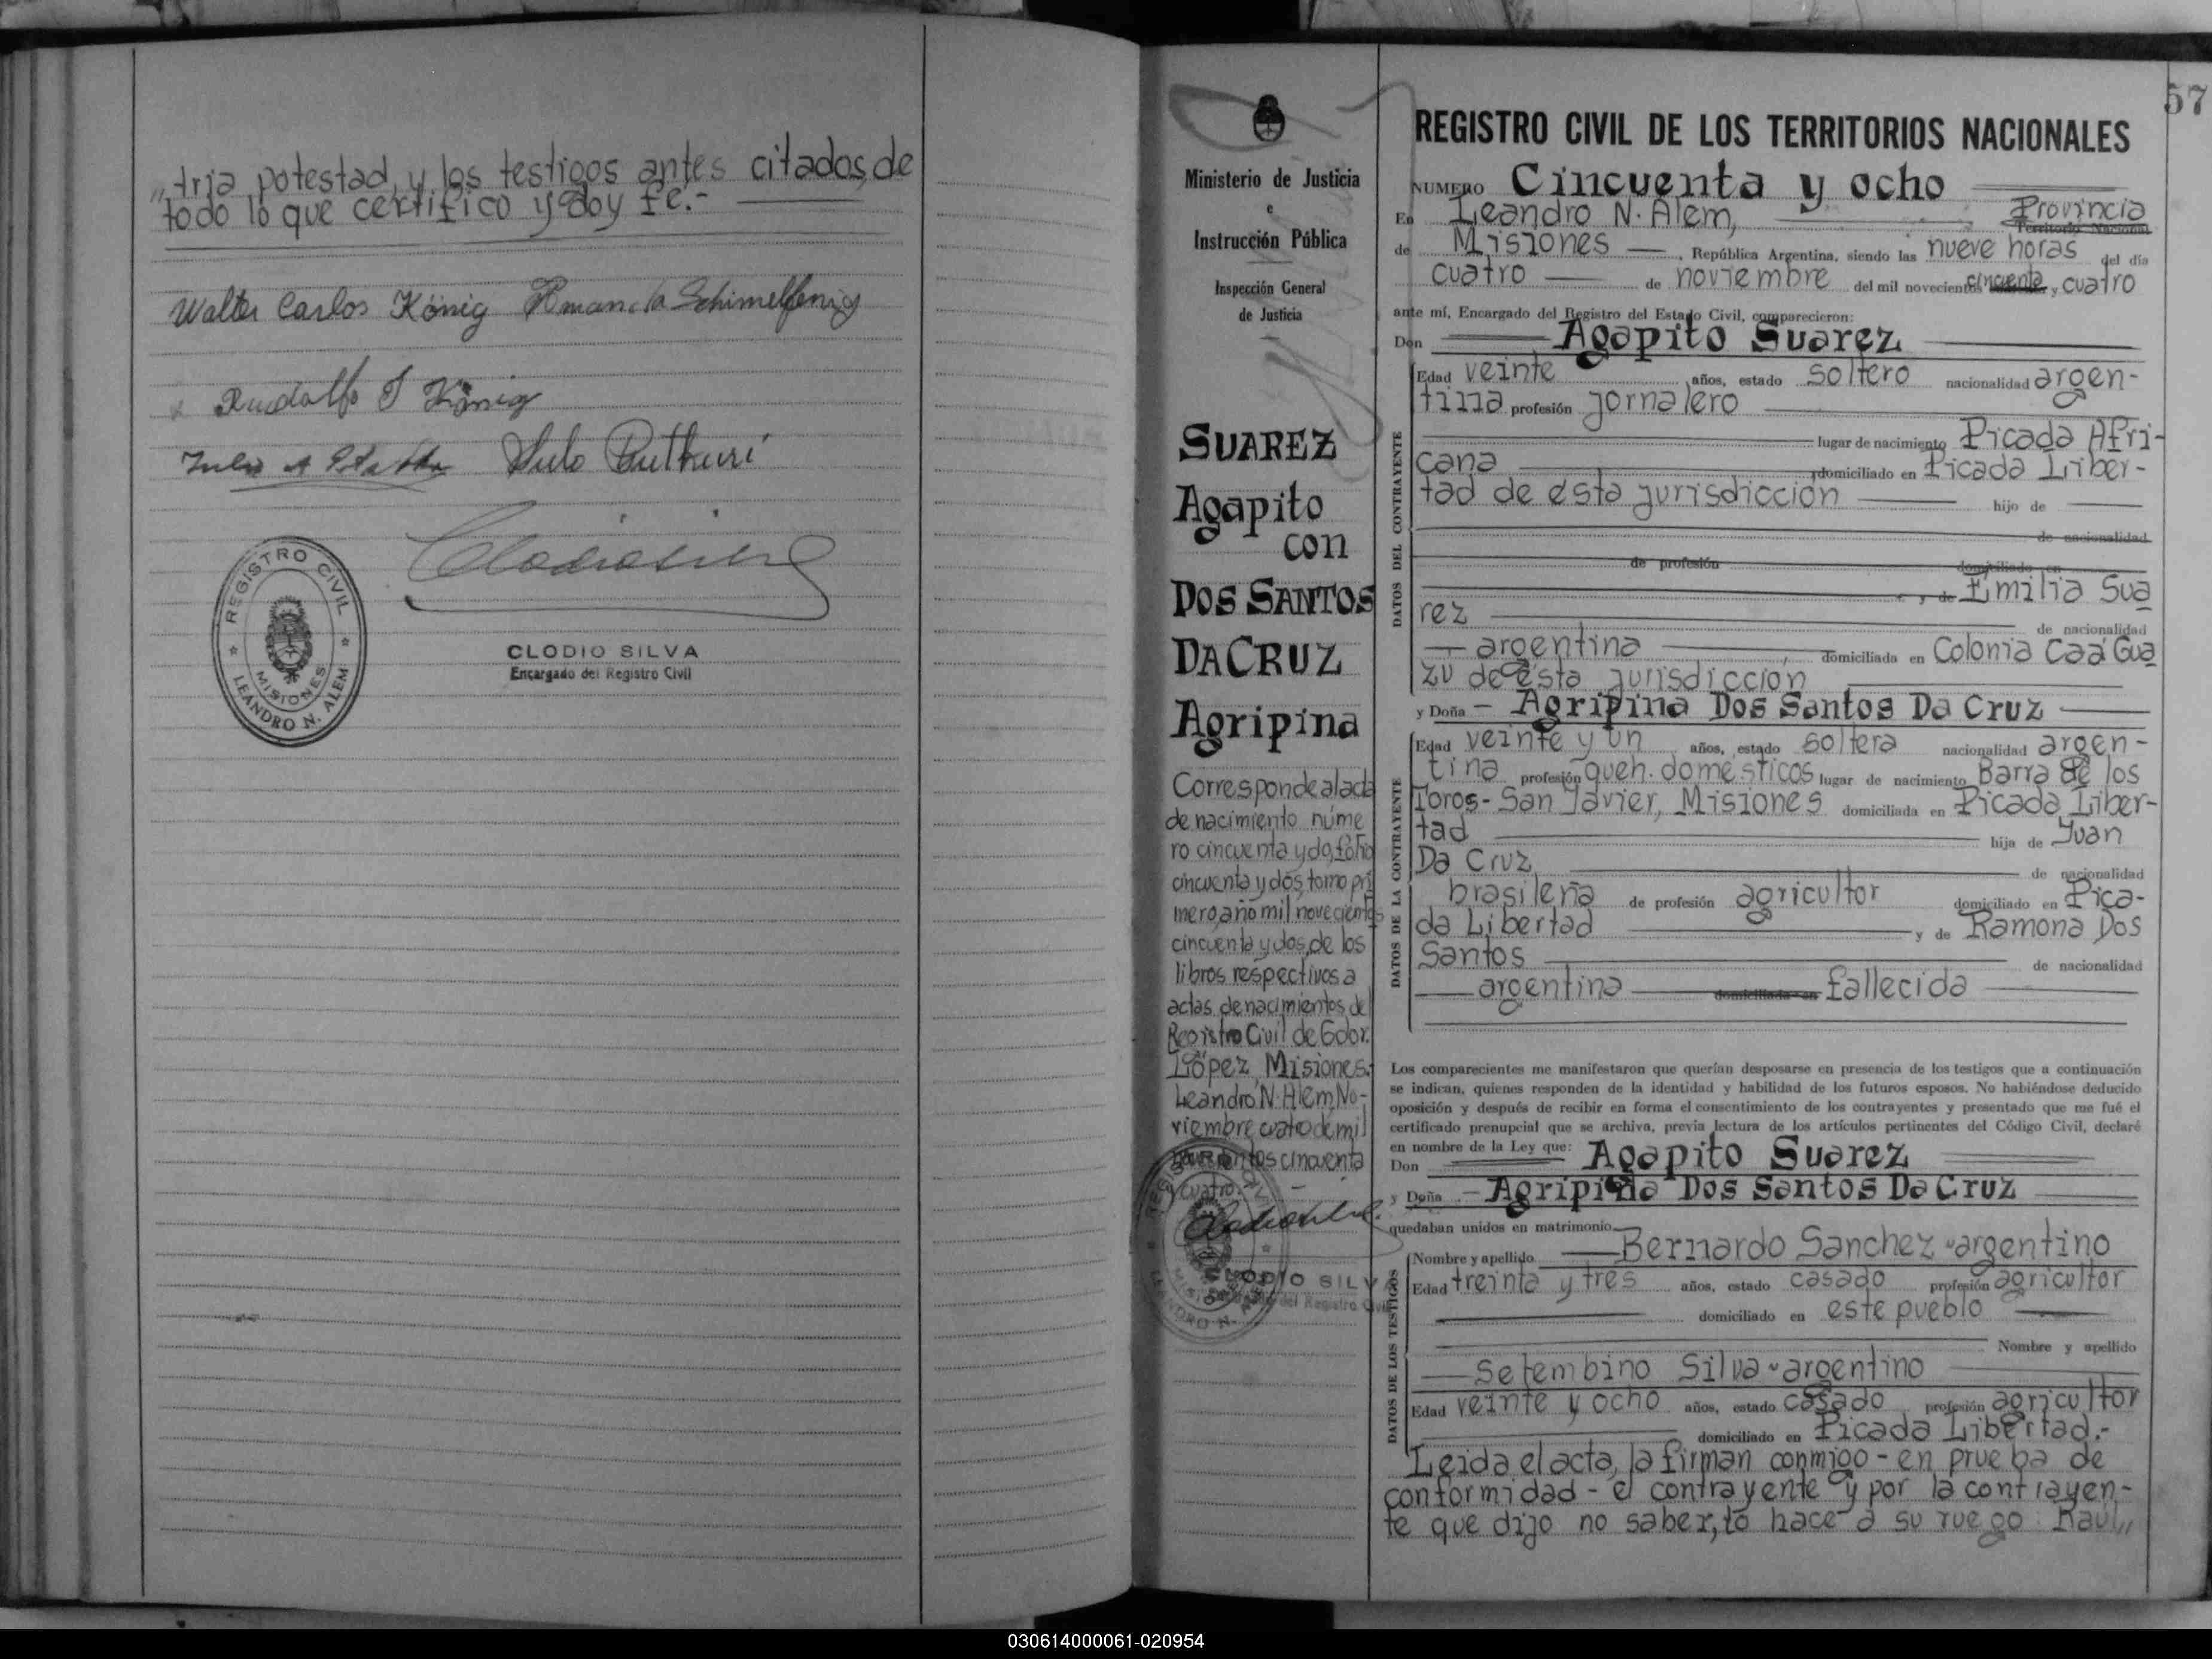 „tria potestad, y los testigos antes citados, de
todo lo que certifico y doy fé.-
Walter Carlos König Amanda Schimelfenig
Rudolfo J König
REGISTRO CIVIL
MISIONES
LEANDRO N. ALEM
CLODIO SILVA
Encargado del Registro Civil
57
Ministerio de Justicia
e
Instrucción Pública
Inspección General
de Justicia
SUAREZ
Agapito
con
DOS SANTOS
DA CRUZ
Agripina
Corresponde al acta
de nacimiento núme
ro cincuenta y dos, folio
cincuenta y dos, tomo pri
mero, año mil novecientos
cincuenta y dos, de los
libros respectivos a
actas de nacimientos del
Registro Civil de Gdor.
López, Misiones.-
Leandro N. Alem, No-
viembre cuatro de mil
novecientos cincuenta
y cuatro.-
CLODIO SILVA
Encargado del Registro Civil
REGISTRO CIVIL DE LOS TERRITORIOS NACIONALES
NUMERO Cincuenta y ocho
En Leandro N. Alem, Provincia Territorio Nacional
de Misiones, República Argentina, siendo las nueve horas del día
cuatro de noviembre del mil novecientos cincuenta y cuatro
ante mí, Encargado del Registro del Estado Civil, comparecieron:
Don Agapito Suarez
DATOS DEL CONTRAYENTE
Edad veinte años, estado soltero nacionalidad argen-
tina profesión jornalero
lugar de nacimiento Picada Afri-
cana domiciliado en Picada Liber-
tad de ésta jurisdicción hijo de
de nacionalidad
de profesión domiciliado en
y de Emilia Sua
rez de nacionalidad
argentina domiciliada en Colonia Caá Gua
zú de ésta jurisdicción
y Doña - Agripina Dos Santos Da Cruz
DATOS DE LA CONTRAYENTE
Edad veinte y un años, estado soltera nacionalidad argen-
tina profesión queh. domésticos lugar de nacimiento Barra de los
Toros - San Javier, Misiones domiciliada en Picada Liber-
tad hija de Juan
Da Cruz de nacionalidad
brasileña de profesión agricultor domiciliado en Pica-
da Libertad y de Ramona Dos
Santos de nacionalidad
argentina domiciliada en fallecida
Los comparecientes me manifestaron que querían desposarse en presencia de los testigos que a continuación
se indican, quienes responden de la identidad y habilidad de los futuros esposos. No habiéndose deducido
oposición y después de recibir en forma el consentimiento de los contrayentes y presentado que me fué el
certificado prenupcial que se archiva, previa lectura de los artículos pertinentes del Código Civil, declaré
en nombre de la Ley que:
Don Agapito Suarez
y Doña - Agripina Dos Santos Da Cruz
quedaban unidos en matrimonio.
DATOS DE LOS TESTIGOS
Nombre y apellido Bernardo Sanchez - argentino
Edad treinta y tres años, estado casado profesión agricultor
domiciliado en este pueblo
Nombre y apellido
Setembino Silva - argentino
Edad veinte y ocho años, estado casado profesión agricultor
domiciliado en Picada Libertad.-
Leída el acta, la firman conmigo - en prueba de
conformidad - el contrayente y por la contrayen-
te que dijo no saber, lo hace a su ruego Raul„
030614000061-020954